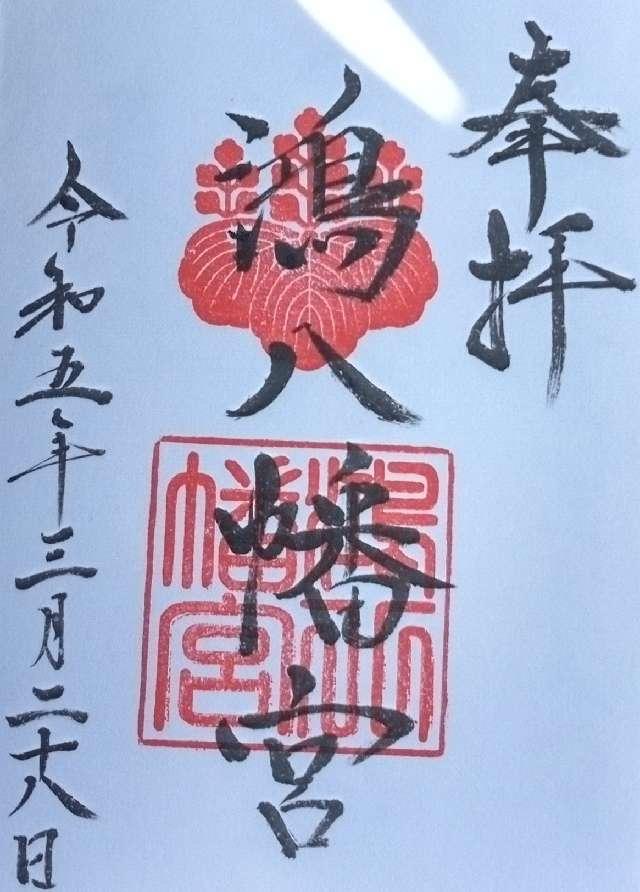 奉拝
鴻八幡宮
鴻八幡宮
令和五年三月二十八日